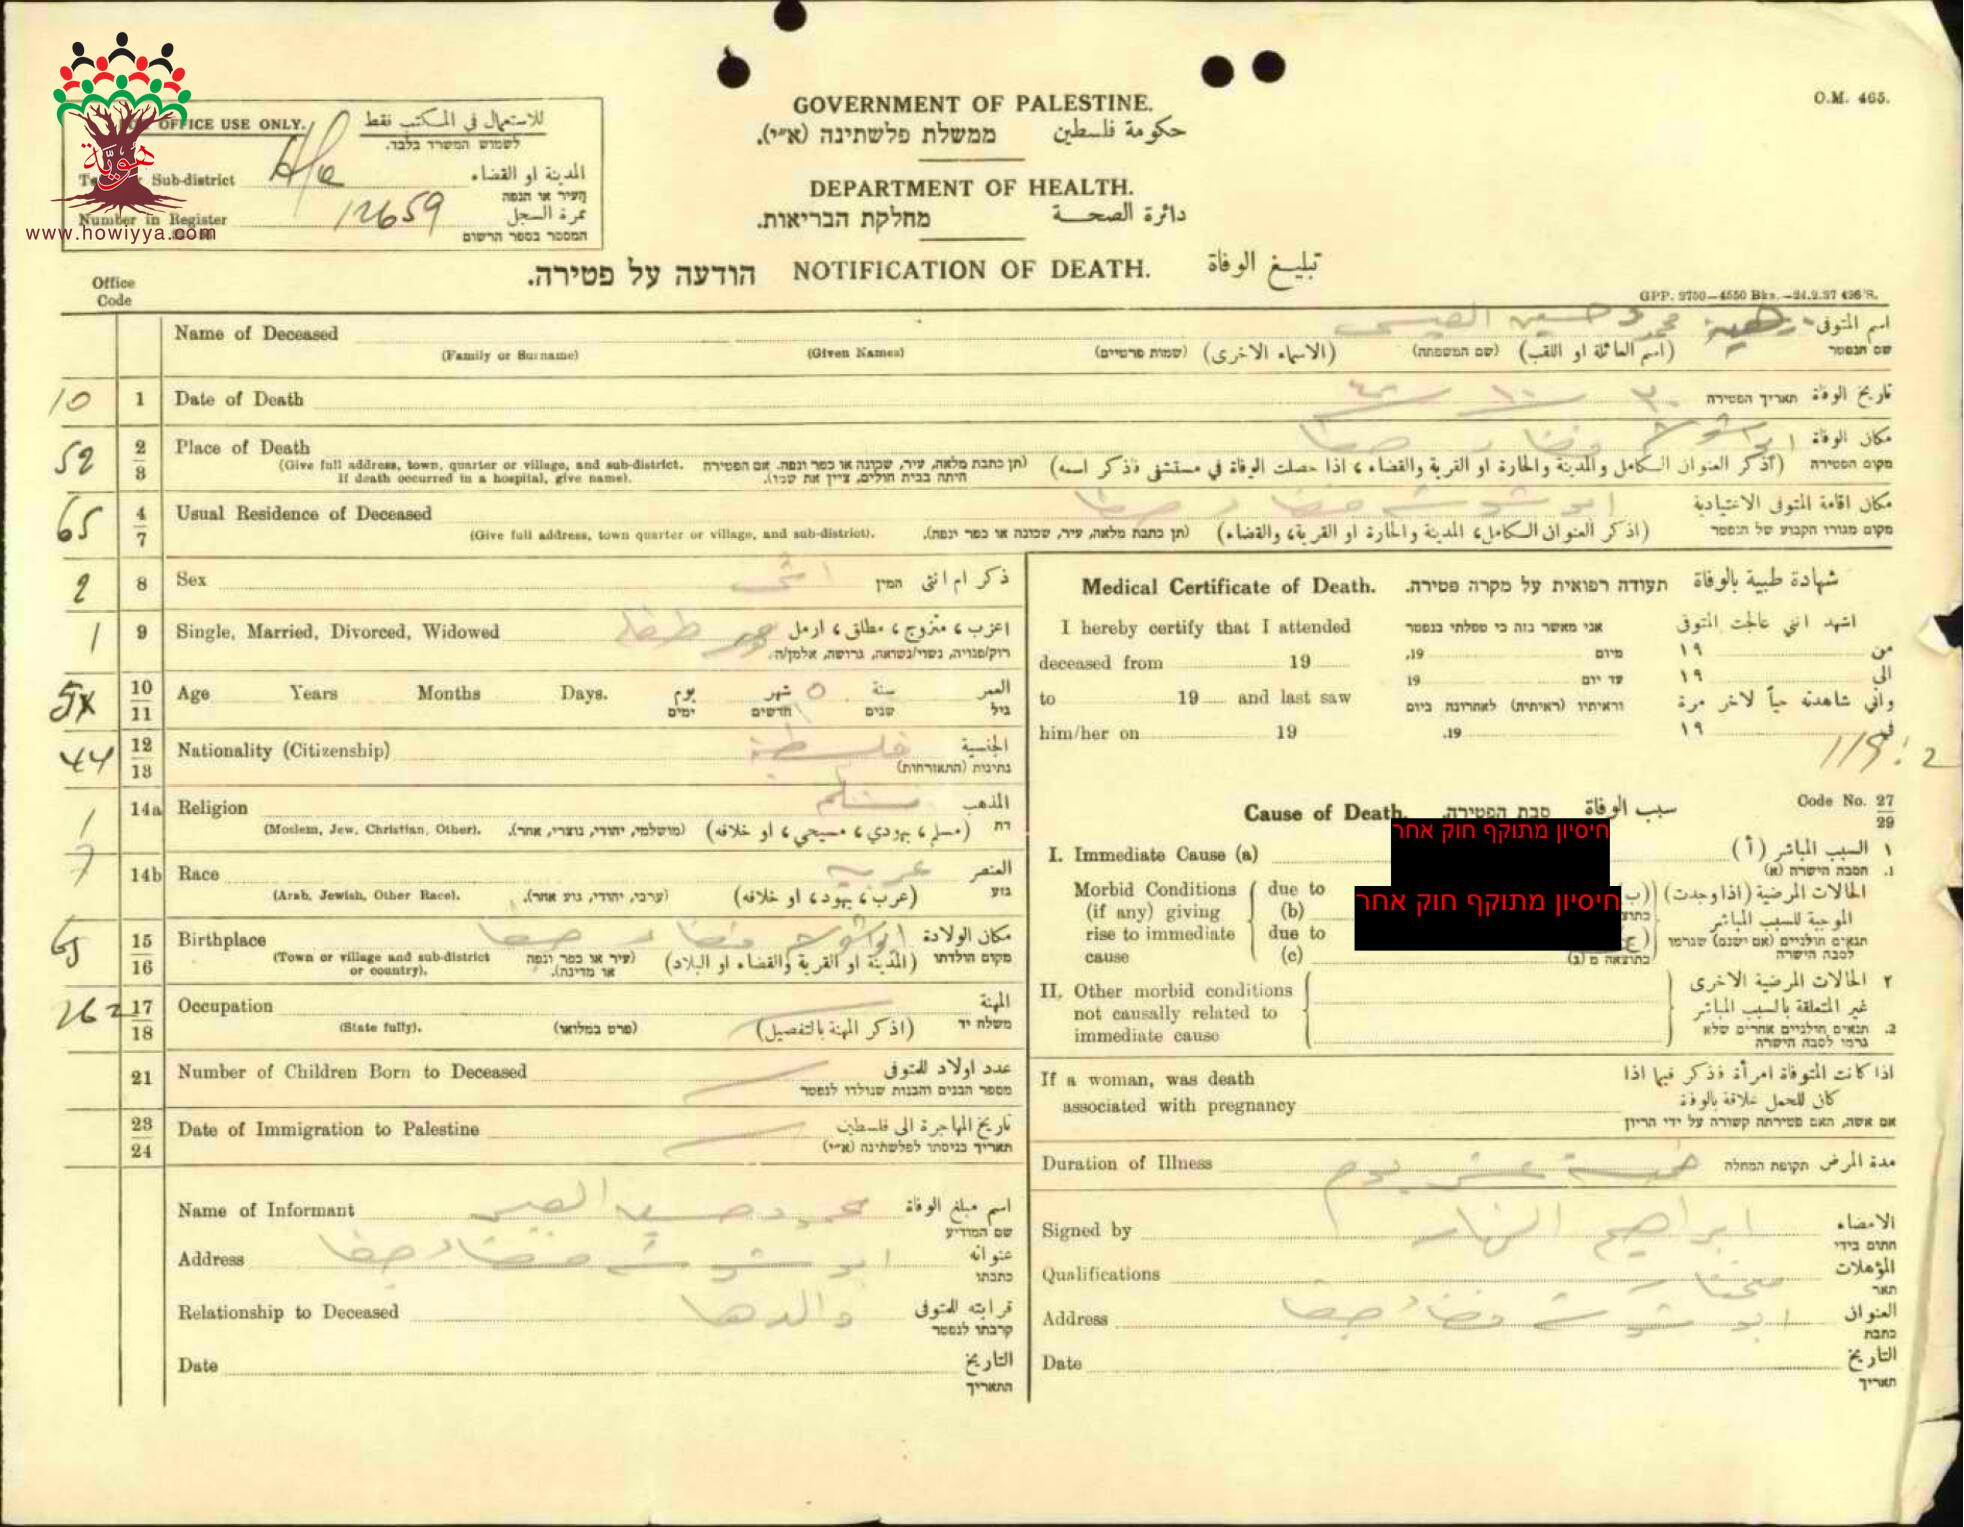 O.M. 465.
GOVERNMENT OF PALESTINE.
حكومة فلسطين ממשלת פלשתינה (א״י).
DEPARTMENT OF HEALTH.
دائرة الصحة מחלקת הבריאות.
تبليغ الوفاة NOTIFICATION OF DEATH. הודעה על פטירה.
GPP. 9750—4550 Bks.—24.2.37 436/S.
هوية
www.howiyya.com
OFFICE USE ONLY. للاستعمال في المكتب فقط
לשמוש המשרד בלבד.
Sub-district المدينة او القضاء
העיר או הנפה
Number in Register 12659 نمرة السجل
המספר בספר הרשום
Office
Code
Name of Deceased محمود حسين اسم المتوفى
(Family or Surname) (Given Names) שמות פרטיים) (الاسماء الاخرى) (שם המשפחה) (اسم العائلة او اللقب) שם הנפטר
10 1 Date of Death תאריך הפטירה تاريخ الوفاة
52 2/3 Place of Death ابو شوشة قضاء مكان الوفاة
(Give full address, town, quarter or village, and sub-district. If death occurred in a hospital, give name).
(תן כתבת מלאה, עיר, שכונה או כפר ונפה. אם הפטירה היתה בבית חולים, ציין את שמו).
(أذكر العنوان الكامل والمدينة والحارة او القرية والقضاء، اذا حصلت الوفاة في مستشفى فذكر اسمه) מקום הפטירה
65 4/7 Usual Residence of Deceased ابو شوشة قضاء مكان اقامة المتوفى الاعتيادية
(Give full address, town quarter or village, and sub-district). (תן כתבת מלאה, עיר, שכונה או כפר ונפה). (اذكر العنوان الكامل، المدينة والحارة او القرية، والقضاء) מקום מגורו הקבוע של הנפטר
2 8 Sex انثى המין ذكر ام انثى
1 9 Single, Married, Divorced, Widowed طفلة اعزب، متزوج، مطلق، ارمل
רוק/פנויה, נשוי/נשואה, גרושה, אלמן/ה.
10/11 Age Years Months Days. يوم ימים شهر חדשים سنة שנים العمر גיל
44 12/13 Nationality (Citizenship) الجنسية
נתינות (התאזרחות)
1 14a Religion المذهب
(Moslem, Jew, Christian, Other). (מושלמי, יהודי, נוצרי, אחר). (مسلم، يهودي، مسيحي، او خلافه) דת
7 14b Race عربية العنصر
(Arab, Jewish, Other Race). (ערבי, יהודי, גזע אחר). (عرب، يهود، او خلافه) גזע
65 15/16 Birthplace ابو شوشة قضاء مكان الولادة
(Town or village and sub-district or country). (עיר או כפר ונפה או מדינה). (المدينة او القرية والقضاء او البلاد) מקום הולדתו
17/18 Occupation المهنة
(State fully). (פרט במלואו) (اذكر المهنة بالتفصيل) משלח יד
21 Number of Children Born to Deceased عدد اولاد للمتوفى
מספר הבנים והבנות שנולדו לנפטר
23/24 Date of Immigration to Palestine تاريخ المهاجرة الى فلسطين
תאריך כניסתו לפלשתינה (א״י)
Name of Informant محمود حسين اسم مبلغ الوفاة
שם המודיע
Address ابو شوشة قضاء عنوانه
כתבתו
Relationship to Deceased والدها قرابته للمتوفى
קרבתו לנפטר
Date التاريخ
התאריך
Medical Certificate of Death. תעודה רפואית על מקרה פטירה. شهادة طبية بالوفاة
I hereby certify that I attended אני מאשר בזה כי טפלתי בנפטר اشهد انني عالجت المتوفى
deceased from 19 מיום 19. من ١٩
to 19 and last saw עד יום 19 الى ١٩
וראיתיו (ראיתיה) לאחרונה ביום واني شاهدته حياً لاخر مرة
him/her on 19 19. في ١٩
Code No. 27/29
Cause of Death. סבת הפטירה. سبب الوفاة
חיסיון מתוקף חוק אחר
I. Immediate Cause (a) ١ السبب المباشر (أ)
1. הסבה הישרה (א)
חיסיון מתוקף חוק אחר
Morbid Conditions (if any) giving rise to immediate cause due to (b) due to (c)
الحالات المرضية (اذا وجدت) الموجبة للسبب المباشر
תנאים חולניים (אם ישנם) שגרמו לסבה הישרה
כתוצאה מ (ג)
II. Other morbid conditions not causally related to immediate cause
٢ الحالات المرضية الاخرى غير المتعلقة بالسبب المباشر
2. תנאים חולניים אחרים שלא גרמו לסבה הישרה
If a woman, was death associated with pregnancy
اذا كانت المتوفاة امرأة فذكر فيما اذا كان للحمل علاقة بالوفاة
אם אשה, האם פטירתה קשורה על ידי הריון
Duration of Illness خمسة عشر يوم תקופת המחלה مدة المرض
Signed by ابراهيم الامضاء
חתום בידי
Qualifications مختار المؤهلات
תאר
Address ابو شوشة قضاء العنوان
כתבת
Date التاريخ
תאריך